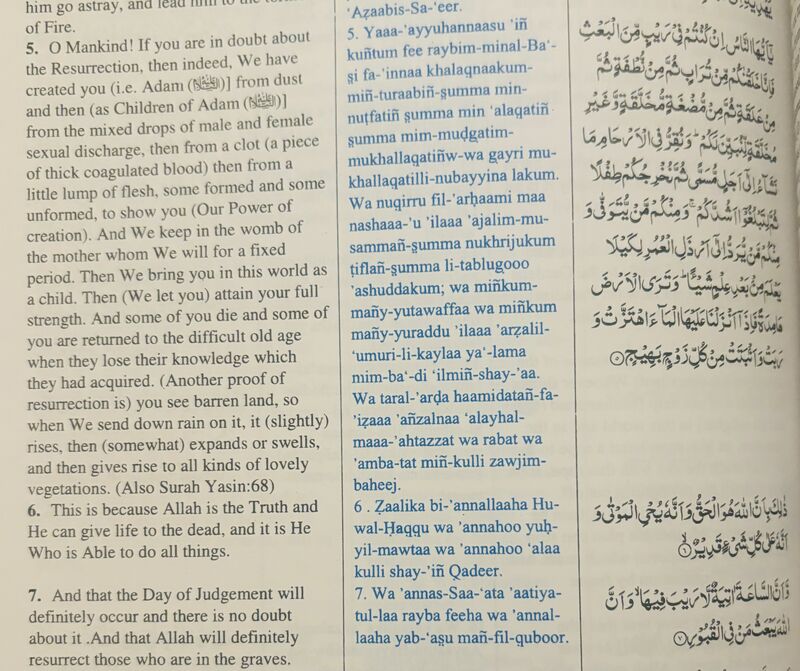 him go astray, and lead him to the
of Fire.
5. O Mankind! If you are in doubt about
the Resurrection, then indeed, We have
created you (i.e. Adam (ﷺ)] from dust
and then (as Children of Adam (ﷺ)]
from the mixed drops of male and female
sexual discharge, then from a clot (a piece
of thick coagulated blood) then from a
little lump of flesh, some formed and some
unformed, to show you (Our Power of
creation). And We keep in the womb of
the mother whom We will for a fixed
period. Then We bring you in this world as
a child. Then (We let you) attain your full
strength. And some of you die and some of
you are returned to the difficult old age
when they lose their knowledge which
they had acquired. (Another proof of
resurrection is) you see barren land, so
when We send down rain on it, it (slightly)
rises, then (somewhat) expands or swells,
and then gives rise to all kinds of lovely
vegetations. (Also Surah Yasin:68)
6. This is because Allah is the Truth and
He can give life to the dead, and it is He
Who is Able to do all things.
7. And that the Day of Judgement will
definitely occur and there is no doubt
about it .And that Allah will definitely
resurrect those who are in the graves.
‘Aẓaabis-Sa-‘eer.
5. Yaaa-’ayyuhannaasu ’iñ
kuñtum fee raybim-minal-Ba‘-
s̱i fa-’innaa khalaqnaakum-
miñ-turaabiñ-s̱umma min-
nuṭfatiñ s̱umma min ‘alaqatiñ
s̱umma mim-muḍgatim-
mukhallaqatiñw-wa gayri mu-
khallaqatilli-nubayyina lakum.
Wa nuqirru fil-’arḥaami maa
nashaaa-’u ’ilaaa ’ajalim-mu-
sammañ-s̱umma nukhrijukum
ṭiflañ-s̱umma li-tablugooo
’ashuddakum; wa miñkum-
mañy-yutawaffaa wa miñkum
mañy-yuraddu ’ilaaa ’arẓalil-
‘umuri-li-kaylaa ya‘-lama
mim-ba‘-di ‘ilmiñ-shay-’aa.
Wa taral-’arḍa haamidatañ-fa-
’iẓaaa ’añzalnaa ‘alayhal-
maaa-’ahtazzat wa rabat wa
’amba-tat miñ-kulli zawjim-
baheej.
6 . Ẓaalika bi-’annallaaha Hu-
wal-Ḥaqqu wa ’annahoo yuḥ-
yil-mawtaa wa ’annahoo ‘alaa
kulli shay-’iñ Qadeer.
7. Wa ’annas-Saa-‘ata ’aatiya-
tul-laa rayba feeha wa ’annal-
laaha yab-‘as̱u mañ-fil-quboor.
يٰۤاَيُّهَا النَّاسُ اِنْ كُنْتُمْ فِيْ رَيْبٍ مِّنَ الْبَعْثِ
فَاِنَّا خَلَقْنٰكُمْ مِّنْ تُرَابٍ ثُمَّ مِنْ نُّطْفَةٍ ثُمَّ
مِنْ عَلَقَةٍ ثُمَّ مِنْ مُّضْغَةٍ مُّخَلَّقَةٍ وَّغَيْرِ
مُخَلَّقَةٍ لِّنُبَيِّنَ لَكُمْ ؕ وَنُقِرُّ فِي الْاَرْحَامِ مَا
نَشَآءُ اِلٰۤى اَجَلٍ مُّسَمًّى ثُمَّ نُخْرِجُكُمْ طِفْلًا
ثُمَّ لِتَبْلُغُوْۤا اَشُدَّكُمْ ۚ وَمِنْكُمْ مَّنْ يُّتَوَفّٰى وَ
مِنْكُمْ مَّنْ يُّرَدُّ اِلٰۤى اَرْذَلِ الْعُمُرِ لِكَيْلَا
يَعْلَمَ مِنْۢ بَعْدِ عِلْمٍ شَيْئًا ؕ وَتَرَى الْاَرْضَ
هَامِدَةً فَاِذَاۤ اَنْزَلْنَا عَلَيْهَا الْمَآءَ اهْتَزَّتْ وَ
رَبَتْ وَاَنْۢبَتَتْ مِنْ كُلِّ زَوْجٍۢ بَهِيْجٍ ۝٥
ذٰلِكَ بِاَنَّ اللّٰهَ هُوَ الْحَقُّ وَاَنَّهٗ يُحْيِ الْمَوْتٰى وَ
اَنَّهٗ عَلٰى كُلِّ شَيْءٍ قَدِيْرٌ ۝٦
وَّاَنَّ السَّاعَةَ اٰتِيَةٌ لَّا رَيْبَ فِيْهَا ۙ وَاَنَّ
اللّٰهَ يَبْعَثُ مَنْ فِي الْقُبُوْرِ ۝٧